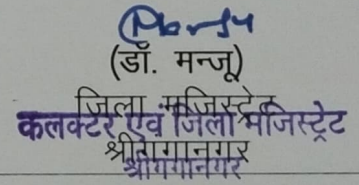 (डॉ. मन्जू)
जिला मजिस्ट्रेट
कलक्टर एवं जिला मजिस्ट्रेट
श्रीगंगानगर
श्रीगंगानगर